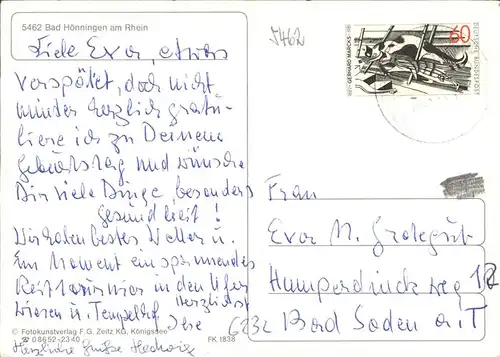 5462 Bad Hönningen am Rhein
Liebe Eva, etwas
verspätet, doch nicht
minder herzlich gratu-
liere ich zu Deinem
Geburtstag und wünsche
Dir viele Dinge, besonders
Gesundheit!
Wir haben bestes Wetter u.
im Moment ein spannendes
Reitturnier in den
wiesen u. Herzlichst
Herzliche Grüße Hedwig
© Fotokunstverlag F. G. Zeitz KG, Königssee
☎ 08652-2340
FK 1838
5462
60
DEUTSCHE BUNDESPOST
GERHARD MARCKS
Frau
Eva M. Grotegut
Humperdinckweg 12
6232 Bad Soden a. T.